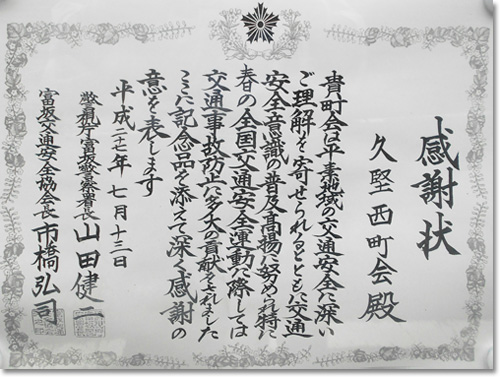 感謝状
久堅西町会殿
貴町会は平素地域の交通安全に深い
ご理解を寄せられるとともに交通
安全意識の普及高揚に努められ特に
春の全国交通安全運動に際しては
交通事故防止に多大の貢献をされました
ここに記念品を添えて深く感謝の
意を表します
平成二十七年七月十三日
警視庁富坂警察署長 山田健一
富坂交通安全協会長 市橋弘司